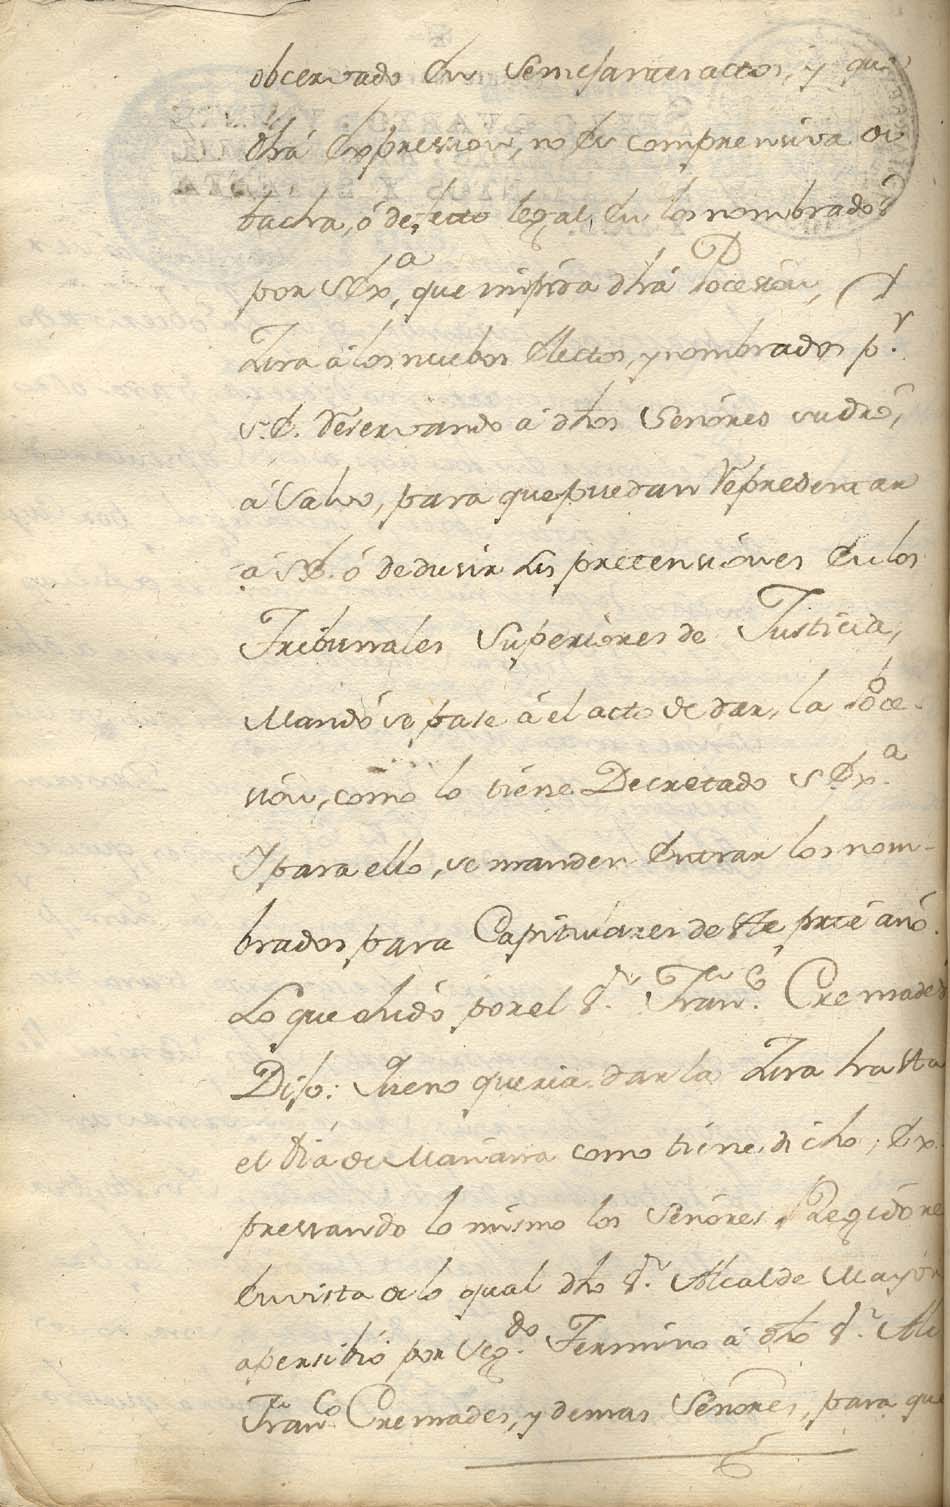 obcervado en Semejantes actos, y que
dhâ Expression, no es comprensiva de
tacha, ó defecto legal, en los nombrados
por S. Exª, que impida dhâ Pocesion,
Zura á los nuebos Electos, y nombrados p.r
S. E. Reservando á dhos Señores su dró,
á Salvo, para que puedan Representar
á S. E. ó dedusir sus pretensiónes en los
Tribunales Superiores de Justicia,
Mandó se pase á el acto de dar, la Poce-
sion, como lo tiene Decretado S. Exª.
Y para ello, se manden Entrar los nom-
brados para Capitulares de este press.te año.
Lo que ohido por el S.r Fran.co Cremades
Dijo: Que no queria dar la Zura hasta
el dia de Mañana como tiene dicho; Ex-
pressando lo mismo los Señores Regidores
En vista de lo qual dho S.r Alcalde Mayor
apersibió por Seg.do Termino á dho S.r Alc
Fran.co Cremades, y demas Señores, para que